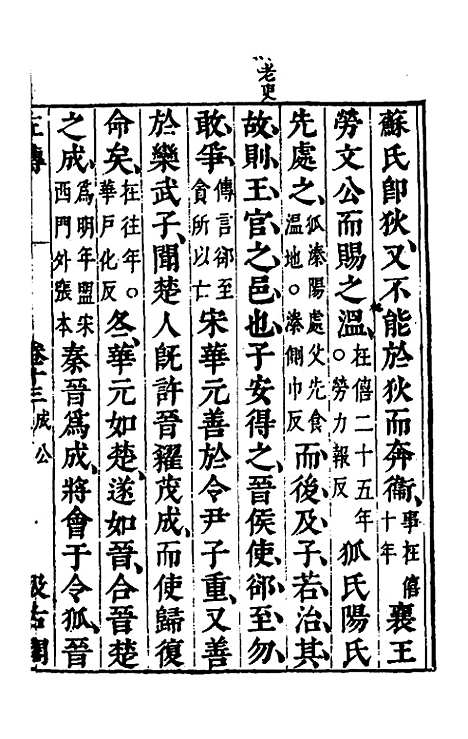 老吏
蘇氏即狄、又不能於狄而奔衞、事在僖十年襄王
勞文公而賜之溫、在僖二十五年○勞力報反狐氏陽氏
先處之、狐溱陽處父先食溫地○溱側巾反而後及子、若治其
故、則王官之邑也、子安得之、晉侯使郤至勿
敢爭、傳言郤至貪所以亡宋華元善於令尹子重、又善
於欒武子、聞楚人旣許晉糴茂成、而使歸復
命矣、在往年○華戸化反冬、華元如楚、遂如晉、合晉楚
之成、爲明年盟宋西門外張本秦晉爲成、將會于令狐、晉
左傳 卷十三 成公 汲古閣